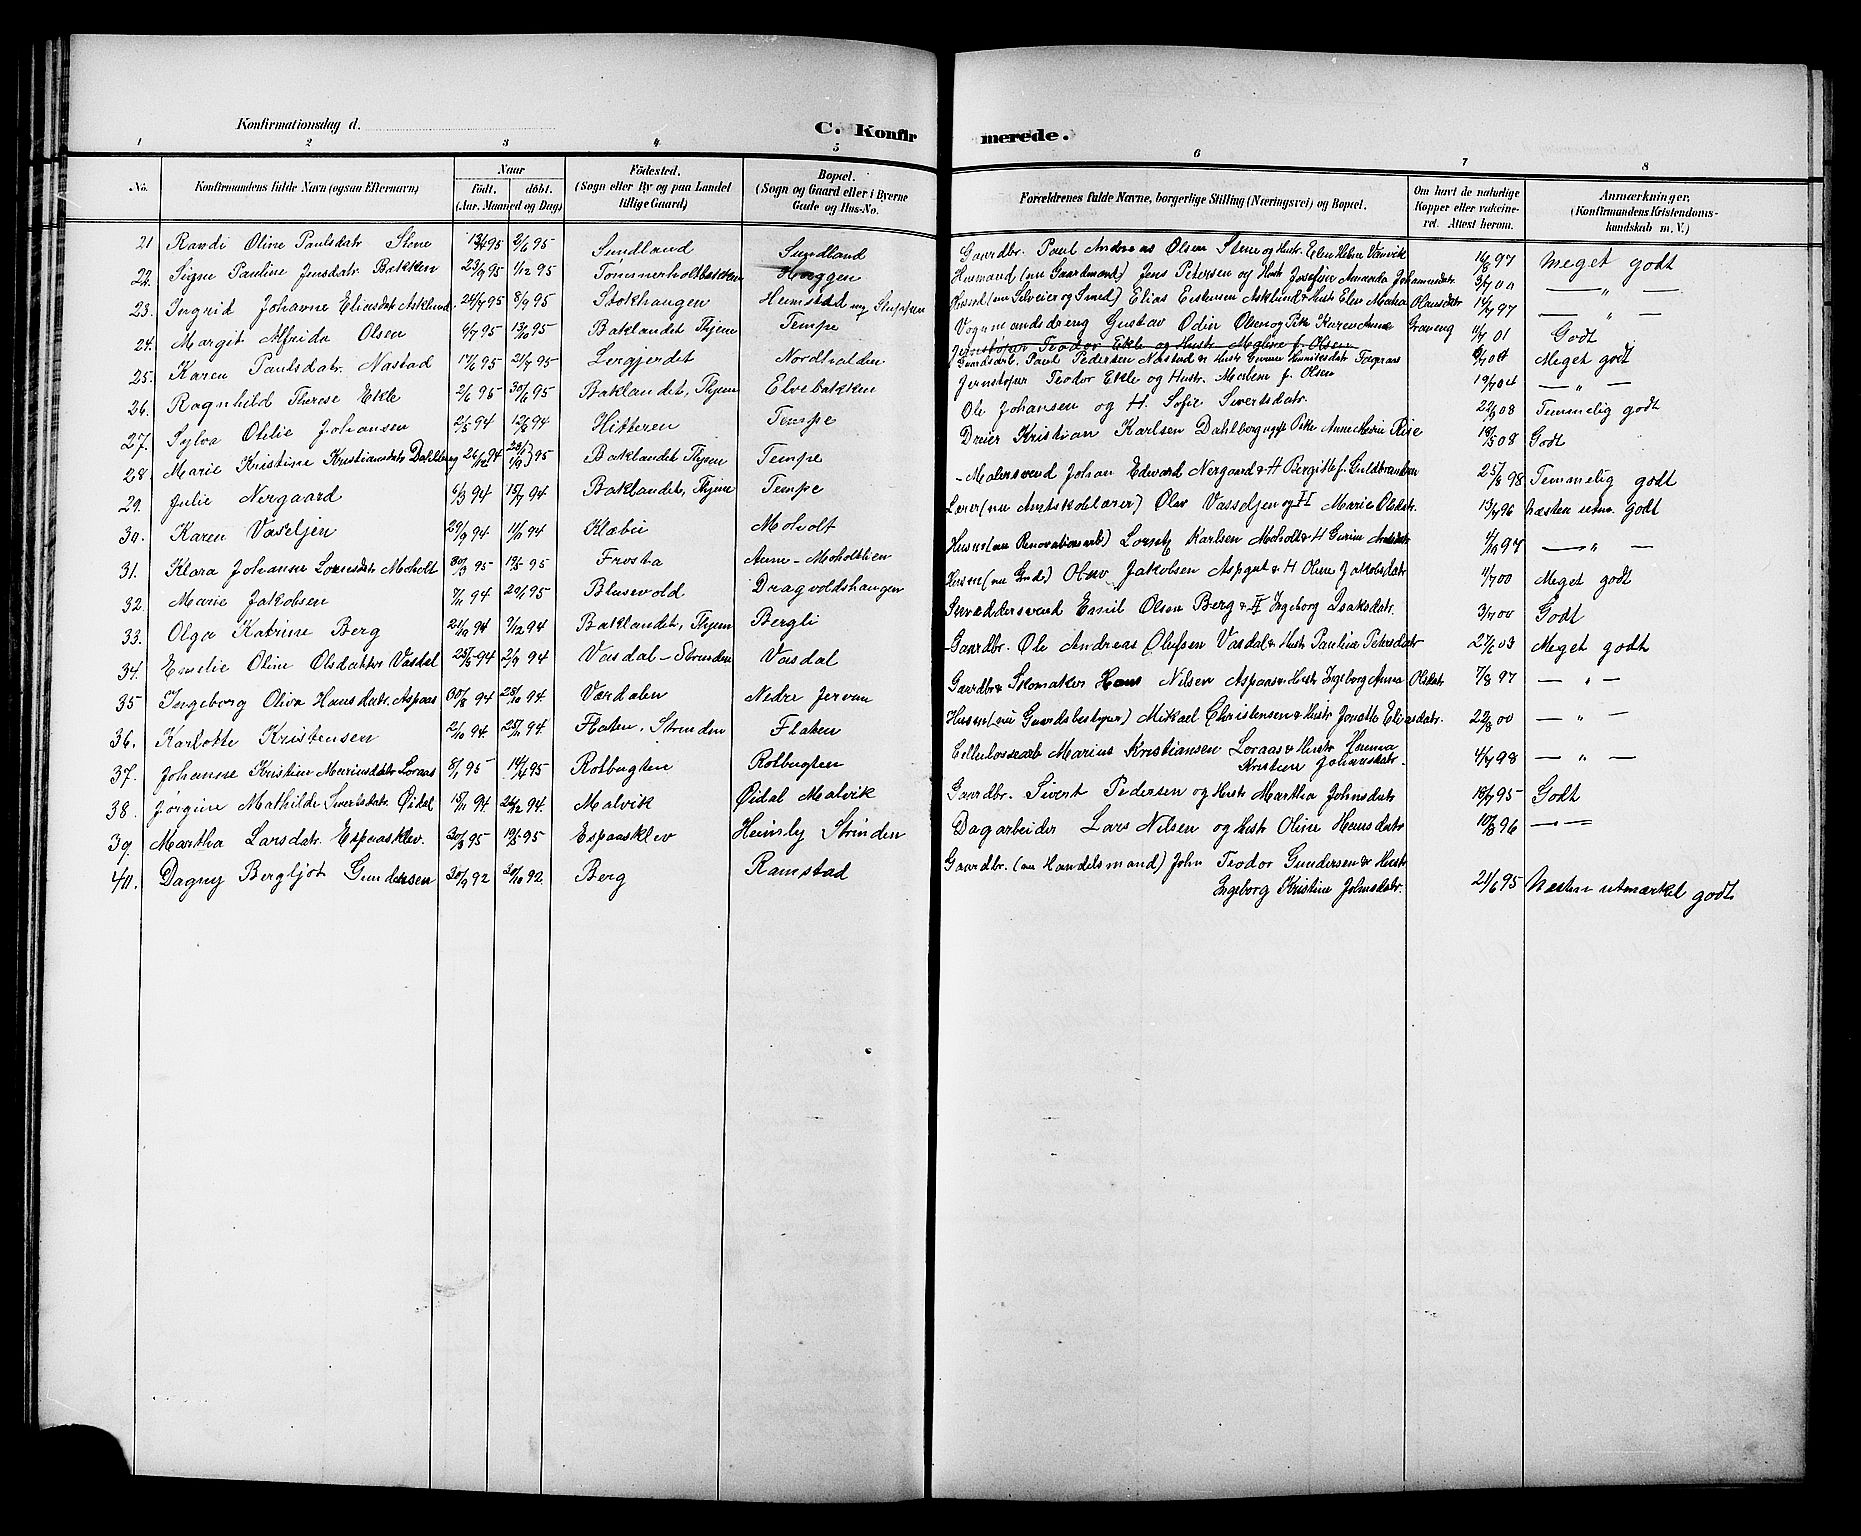 Konfirmationsdag d.
C. Konfir merede.
1 2 3 4 5 6 7 8
No. Konfirmandens fulde Navn (ogsaa Efternavn) Naar født. døbt. (Aar, Maaned og Dag) Fødested. (Sogn eller By og paa Landet tillige Gaard) Bopæl. (Sogn og Gaard eller i Byerne Gade og Hus-No. Forældrenes fulde Navne, borgerlige Stilling (Næringsvei) og Bopæl. Om havt de naturlige Kopper eller vakcineret. Attest herom. Anmærkninger. (Konfirmandens Kristendomskundskab m. V.)
21 Randi Oline Paulsdatr Stene 13/4 95 2/6 95 Sundland Sundland Gaardbr. Paul Andreas Olsen Stene og Hustr. Elen Helene Vanvik 16/8 97 Meget godt
22. Signe Pauline Jensdatr Bakken 23/9 95 1/12 95 Tømmerholtbakken Høiggen Husmand (nu Gaardmand) Jens Petersen og Hustr Josefine Amanda Johannesdatr 3/7 00 — " —
23. Ingrid Johanne Eliasdatr Asklund 24/7 95 8/9 95 Stokhaugen Heimstad Elias Eriksen Asklund & Hustr Elen Martha Olausdatr 14/7 97 — " —
24. Margit Alfrida Olsen 6/7 95 13/10 95 Baklandet Thjem Tempe Vognmandsdreng Gustav Odin Olsen og Pike Karen Anna Graneng 11/7 01 Godt
Jernstøper Teodor Ekle og Hustr Malene f. Olsen
25. Karen Paulsdatr. Nastad 17/6 95 21/7 95 Lergjerdet Nordhalden Gaardsarb. Paul Pedersen Nastad & Hustr Meget godt
26. Ragnhild Therese Ekle 2/6 95 30/6 95 Baklandet, Thjem Elvebakken Jernstøper Teodor Ekle og Hustr. Malene f. Olsen 19/7 04 — " —
27. Sylva Otelie Johansen 2/5 94 12/8 94 Hitteren Tempe Ole Johansen og H. Sofie Sivertsdatr. 22/9 08 Temmelig godt
28. Marie Kristine Kristiansdatr Dahlberg 26/12 94 95 Baklandet Thjem Tempe Dreier Kristian Karlsen Dahlberg og Pike Anne Marie Riise 18/5 08 Godt
29. Julie Nergaard 6/3 94 15/7 94 Baklandet, Thjem Tempe Malersvend Johan Edvard Nergaard & H Bergitte f. Guldbrandsen 25/8 98 Temmelig godt
30. Karen Vaseljen 29/9 94 11/11 94 Klæbu Moholt Lærer (nu Amtskolelærer) Olav Vasseljen og H Marie Olsdatr. 13/7 96 Næsten utm. godt
31. Klara Johanne Lorensdatr Moholt 30/3 95 12/5 95 Frosta Aune-Moholtlien Husm (nu Renovationsarb) Lorentz Karlsen Moholt & H Gurine 4/10 97 — " —
32. Marie Jakobsen 7/11 94 20/1 95 Blusevold Dragvoldshaugen Husm (nu Gaardb.) Oluv Jakobsen Aspgut & H Oline Jakobsdatr 11/7 00 Meget godt
33. Olga Katrine Berg 21/9 94 7/12 94 Baklandet, Thjem Bergli Skræddersvend Emil Olsen Berg & H Ingeborg Isaksdatr. 3/7 00 Godt
34. Emelie Oline Olsdatter Vasdal 25/5 94 2/9 94 Vasdal-Strinden Vasdal Gaardbr. Ole Andreas Olufsen Vasdal & Hustr Pauline Petersdatr 27/6 03 Meget godt
35 Ingeborg Oliva Hansdatr. Aspaas 30/8 94 28/10 94 Værdalen Nedre Jervan Gaardbr & Skomaker Hans Nilsen Aspaas & Hustr Ingeborg Anna Olsdatr 7/8 97 — " —
36. Karlotte Kristensen 2/10 94. 25/11 94. Flaten, Strinden Flaten Husm (nu Gaardsbestyrer) Mikael Christensen & Hustr Jonette Eliasdatr. 22/8 00 — " —
37. Johanne Kristine Mariusdatr Loraas 8/1 95 14/4 95 Rotbugten Rotbugten Cellulosearb Marius Kristiansen Loraas & Hustr Hanna
Kristien Johansdatr. 4/7 98 — " —
38. Jørgine Mathilde Sivertsdatr. Øidal 15/11 94 26/12 94. Malvik Øidal Malvik Gaardbr. Sivert Pedersen og Hustr Martha Johnsdatr 19/7 95 Godt
39. Martha Larsdatr. Espaasklev. 20/3 95 19/5 95 Espaasklev Heimly Strinden Dagarbeider Lars Nilsen og Hustr Oline Hansdatr 10/8 96 — " —
40. Dagny Bergljot Gundersen 20/9 92 30/10 92. Berg Ramstad Gaardbr. (nu Handelsmand) John Teodor Gundersen & Hustr
Ingeborg Kristine Johnsdatr. 21/6 95 Næsten utmærket godt.